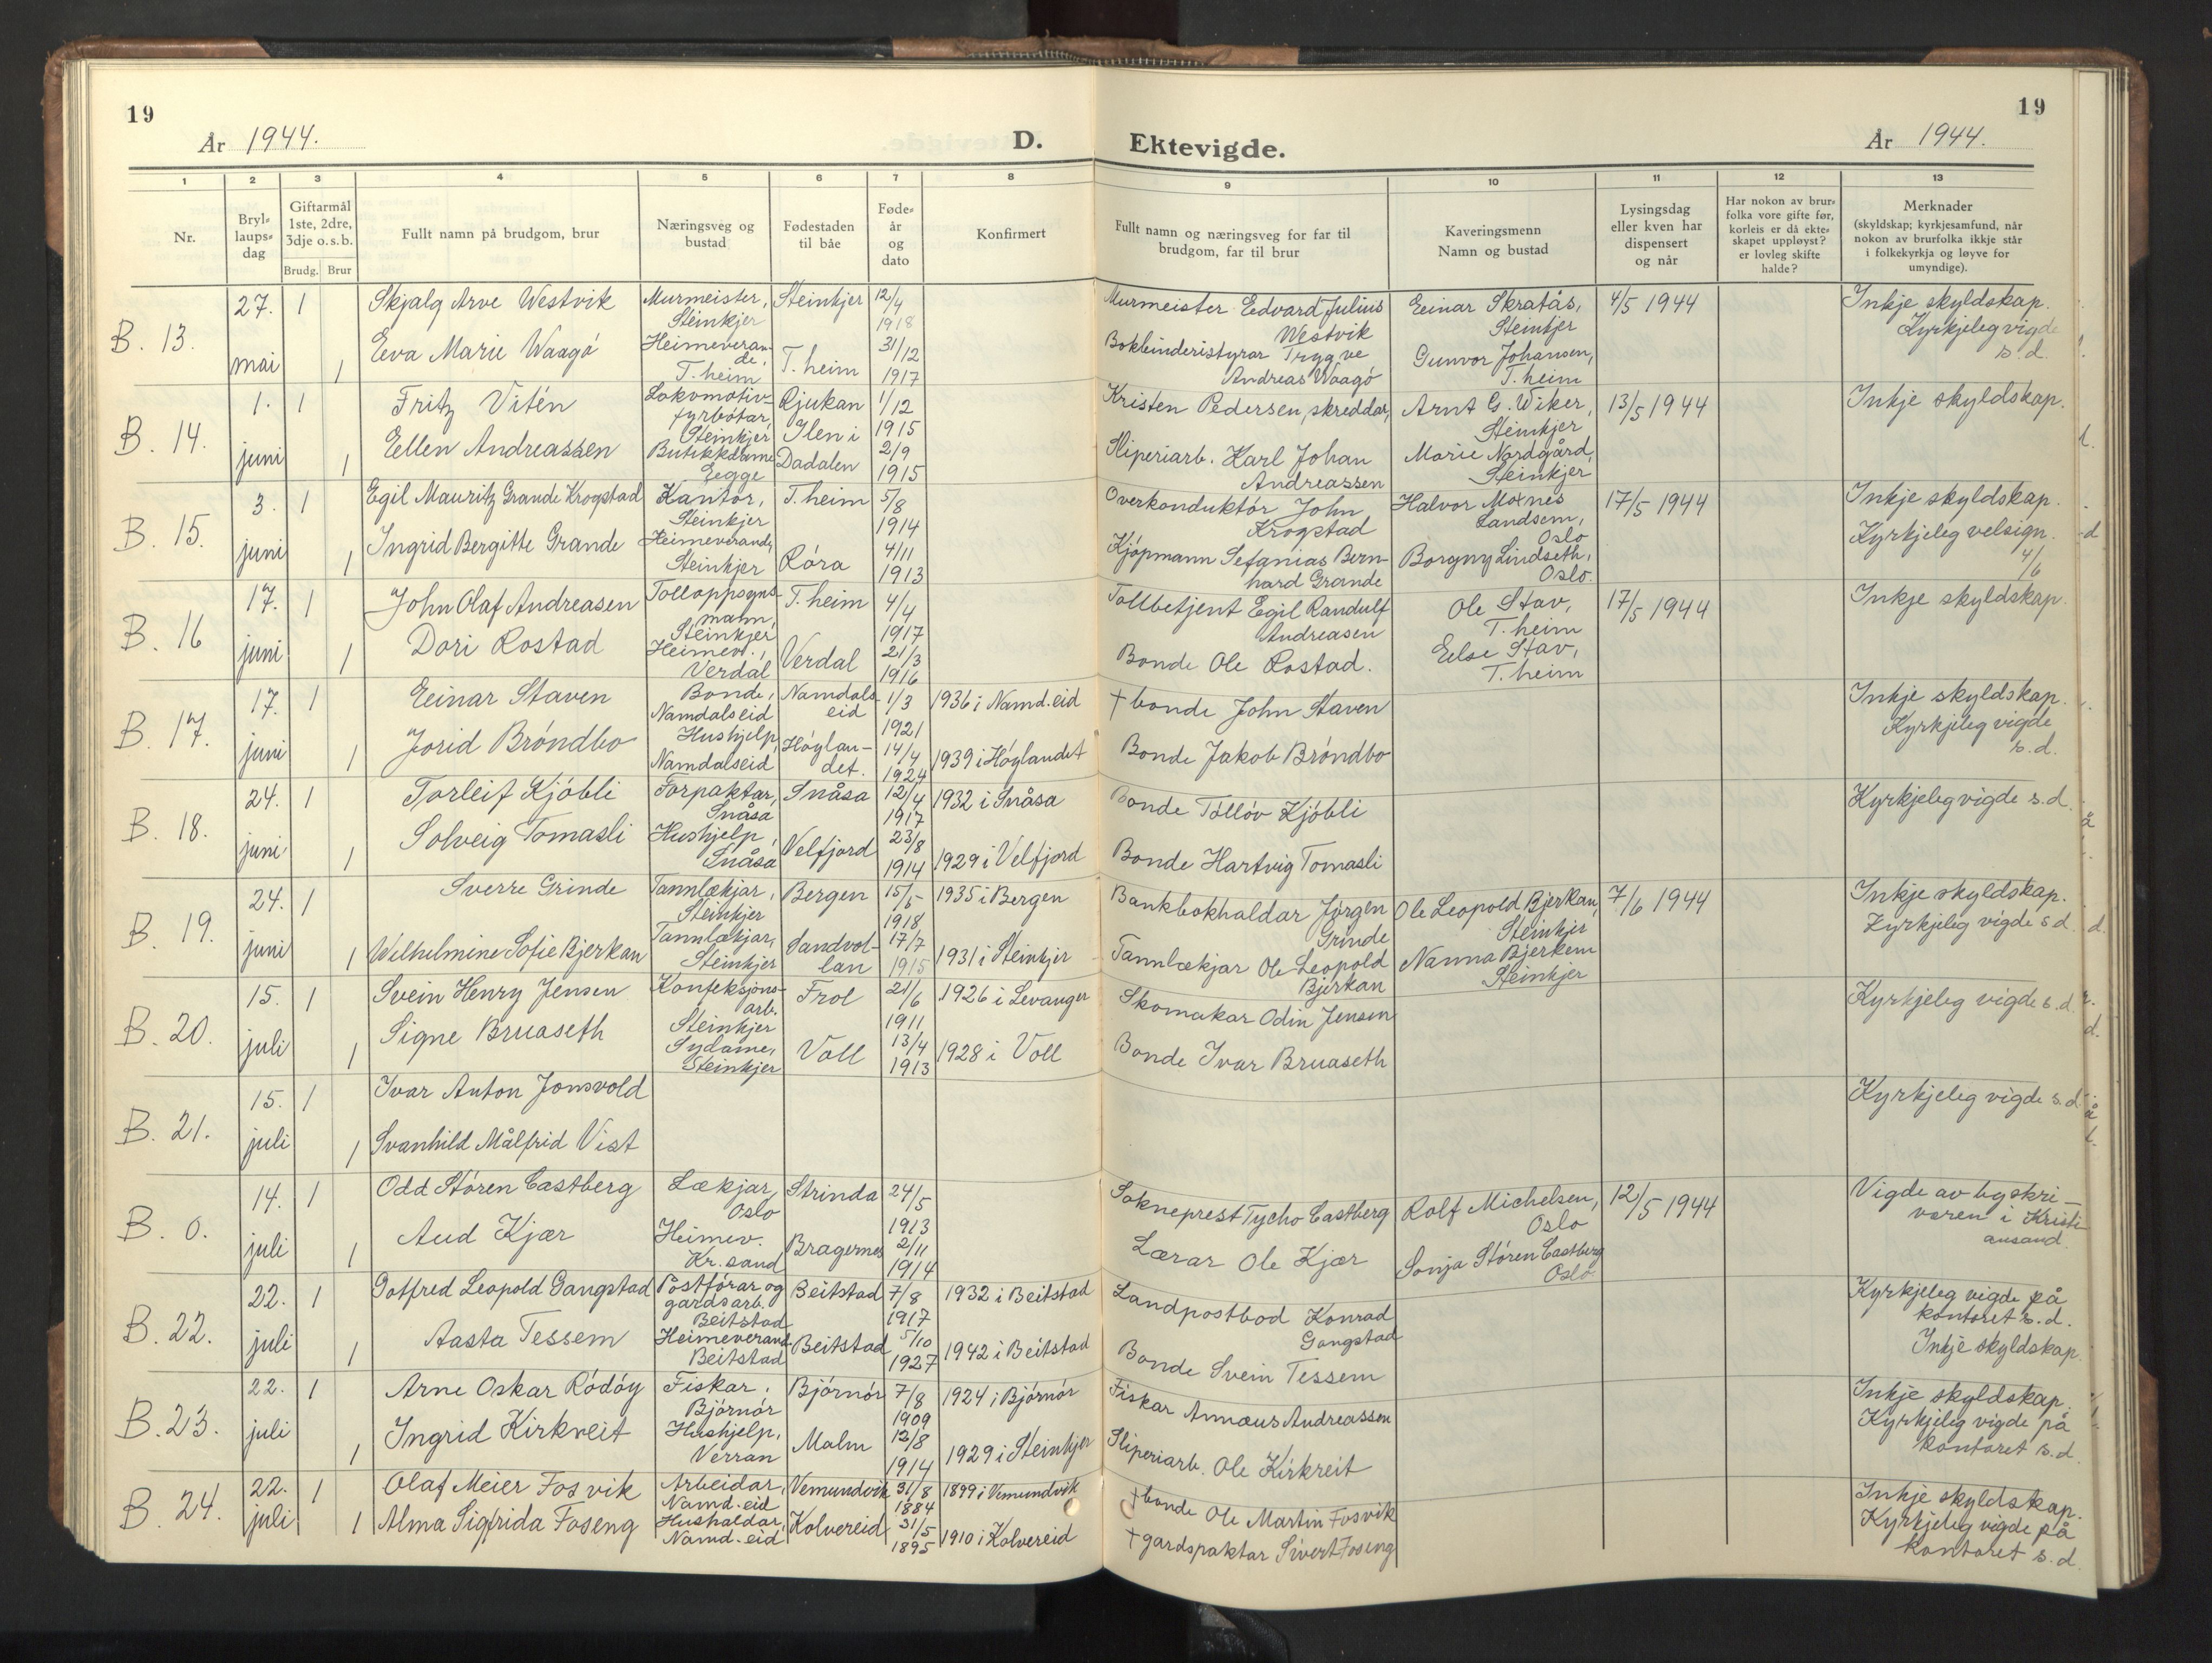 19
19
År 1944.
D.
Ektevigde.
År 1944.
1 2 3 4 5 6 7 8 9 10 11 12 13
Nr.
Bryl-
laups-
dag
Giftarmål
1ste, 2dre,
3dje o.s.b.
Brudg. Brur
Fullt namn på brudgom, brur
Næringsveg og
bustad
Fødestaden
til båe
Føde-
år
og
dato
Konfirmert
Fullt namn og næringsveg for far til
brudgom, far til brur
Kaveringsmenn
Namn og bustad
Lysingsdag
eller kven har
dispensert
og når
Har nokon av brur-
folka vore gifte før,
korleis er då ekte-
skapet uppløyst?
er lovleg skifte
halde?
Merknader
(skyldskap; kyrkjesamfund, når
nokon av brurfolka ikkje står
i folkekyrkja og løyve for
umyndige).
B. 13.
27.
mai
1
1
Skjalg Arve Westvik
Eva Marie Waagó
Murmeister,
Steinkjer
Heimeveran-
de,
T. heim
Steinkjer
T. heim
12/4
1918
31/12
1917
Murmeister Edvard Julius
Westvik
Bokbinderistyrar Trygve
Andreas Waagó
Einar Skratås,
Steinkjer
Gunvor Johansen,
T. heim
4/5 1944
Inkje skyldskap.
Kyrkjeleg vigde
s.d.
B. 14.
1.
juni
1
1
Fritz Vitén
Ellen Andreassen
Lokomotiv-
fyrbótar,
Steinkjer
Butikkdame
Egge
Rjukan
Ilen i
Dadalen
1/12
1915
2/9
1915
Kristen Pedersen, skreddar,
Sliperiarb. Karl Johan
Andreassen
Arnt G. Wiker,
Steinkjer
Marie Nordgård,
Steinkjer
13/5 1944
Inkje skyldskap.
B. 15.
3.
juni
1
1
Egil Mauritz Grande Krogstad
Ingrid Bergitte Grande
Kantor,
Steinkjer
Heimeverande,
Steinkjer
T. heim
Róra
5/8
1914
4/11
1913
Overkonduktór John
Krogstad
Kjópmann Sefanias Bern-
hard Grande
Halvor Moxnes
Landsem,
Oslo
Borgny Lindseth,
Oslo.
17/5 1944
Inkje skyldskap.
Kyrkjeleg velsign.
4/6
B. 16
17.
juni
1
1
John Olaf Andreasen
Dori Rostad
Tolloppsyns-
mann,
Steinkjer
Heimev.,
Verdal
T. heim
Verdal
4/4
1917
21/3
1916
Tollbetjent Egil Randulf
Andreasen
Bonde Ole Rostad.
Ole Stav,
T. heim
Else Stav,
T. heim
17/5 1944
Inkje skyldskap.
B. 17.
17.
juni
1
1
Einar Staven
Jorid Bróndbo
Bonde,
Namdalseid
Hushjelp,
Namdalseid
Namdals
eid
Hóylan-
det.
1/3
1921
14/4
1924
1936 i Namd.eid
1939 i Hóylandet
† bonde John Staven
Bonde Jakob Bróndbo
Inkje skyldskap.
Kyrkjeleg vigde
s.d.
B. 18.
24.
juni
1
1
Torleif Kjóbli
Solveig Tomasli
Forpaktar,
Snåsa
Hushjelp,
Snåsa
Snåsa
Velfjord
12/4
1917
23/8
1914
1932 i Snåsa
1929 i Velfjord
Bonde Tollóv Kjóbli
Bonde Hartvig Tomasli
Kyrkjeleg vigde s.d.
B. 19.
24.
juni
1
1
Sverre Grinde
Wilhelmine Sofie Bjerkan
Tannlækjar,
Steinkjer
Tannlækjar,
Steinkjer
Bergen
Sandvol-
lan
15/5
1918
17/7
1915
1935 i Bergen
1931 i Steinkjer
Bankbokhaldar Jórgen
Grinde
Tannlækjar Ole Leopold
Bjerkan
Ole Leopold Bjerkan,
Steinkjer
Nanna Bjerkem
Steinkjer
7/6 1944
Inkje skyldskap.
Kyrkjeleg vigde s.d.
B. 20.
15.
juli
1
1
Svein Henry Jensen
Signe Bruaseth
Konfeksjons-
arb.
Steinkjer
Sydame,
Steinkjer
Frol
Voll
21/6
1911
13/4
1913
1926 i Levanger
1928 i Voll
Skomakar Odin Jensen
Bonde Ivar Bruaseth
Kyrkjeleg vigde s.d.
B. 21.
15.
juli
1
1
Ivar Anton Jonsvold
Svanhild Målfrid Vist
Kyrkjeleg vigde s.d.
B. 0.
14.
juli
1
1
Odd Stóren Castberg
Aud Kjær
Lækjar,
Oslo
Heimev.
Kr. sand
Strinda
Bragernes
24/5
1913
2/11
1914
Sokneprest Tycho Castberg
Lærar Ole Kjær
Rolf Michelsen,
Oslo
Sonja Stóren Castberg
Oslo.
12/5 1944
Vigde av byskri-
varen i Kristi-
ansand.
B. 22.
22.
juli
1
1
Gotfred Leopold Gangstad
Aasta Tessem
Postfórar og
gardsarb.
Beitstad
Heimeverand.
Beitstad
Beitstad
Beitstad
7/8
1917
5/10
1927
1932 i Beitstad
1942 i Beitstad
Landpostbod Konrad
Gangstad
Bonde Svein Tessem
Kyrkjeleg vigde på
kontoret s.d.
Inkje skyldskap.
B. 23.
22.
juli
1
1
Arne Oskar Ródóy
Ingrid Kirkreit
Fiskar,
Bjórnór
Hushjelp,
Verran
Bjórnór
Malm
7/8
1909
12/8
1914
1924 i Bjórnór
1929 i Steinkjer
Fiskar Annæus Andreassen
Sliperiarb. Ole Kirkreit
Inkje skyldskap.
Kyrkjeleg vigde på
kontoret s.d.
B. 24.
22.
juli
1
1
Olaf Meier Fosvik
Alma Sigfrida Foseng
Arbeidar,
Namd.eid
Hushaldar,
Namd.eid
Vemundvik
Kolvereid
31/8
1884
31/5
1895
1899 i Vemundvik
1910 i Kolvereid
† bonde Ole Martin Fosvik
† gardspaktar Sivert Foseng
Inkje skyldskap.
Kyrkjeleg vigde på
kontoret s.d.